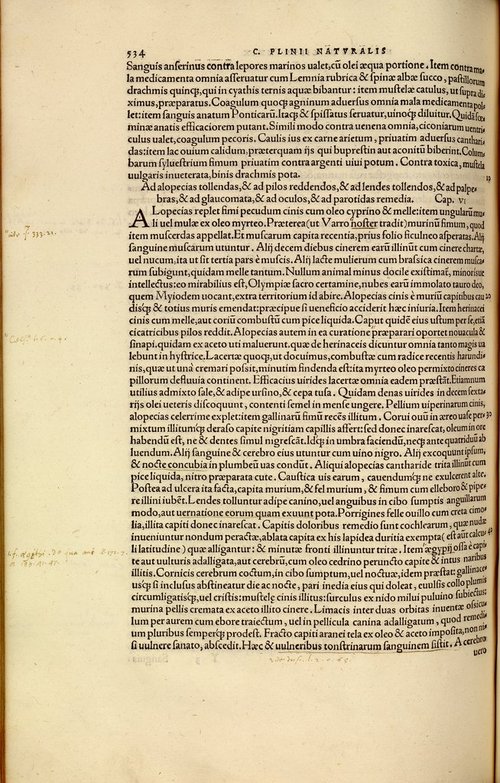 534 C. PLINII NATVRALIS
Sanguis anserinus contra lepores marinos ualet, cū olei æqua portione. Item contra ma
la medicamenta omnia asseruatur cum Lemnia rubrica & spinæ albæ succo, pastillorum
drachmis quinq, qui in cyathis ternis aquæ bibantur: item mustelæ catulus, ut supra di
ximus, præparatus. Coagulum quoq agninum aduersus omnia mala medicamenta pol
let: item sanguis anatum Ponticarū. Itaq & spissatus seruatur, uinoq diluitur. Quidā
minæ anatis efficaciorem putant. Simili modo contra uenena omnia, ciconiarum uentri
culus ualet, coagulum pecoris. Caulis ius ex carne arietum, priuatim aduersus canthari
das: item lac ouium calidum, præterquam ijs qui buprestin aut aconitū biberint. Colum
barum syluestrium fimum priuatim contra argenti uiui potum. Contra toxica, mustela
uulgaris inueterata, binis drachmis pota.
10
Ad alopecias tollendas, & ad pilos reddendos, & ad lendes tollendos, & ad palpe
bras, & ad glaucomata, & ad oculos, & ad parotidas remedia. Cap. VI
ALopecias replet fimi pecudum cinis cum oleo cyprino & melle: item ungularū mu
li uel mulæ ex oleo myrteo. Præterea (ut Varro noster tradit) murinū fimum, quod
item muscerdas appellat. Et muscarum capita recentia, prius folio ficulneo asperatas. Alij
sanguine muscarum utuntur. Alij decem diebus cinerem earū illinūt cum cinere chartæ,
uel nucum, ita ut sit tertia pars è muscis. Alij lacte mulierum cum brassica cinerem musca
rum subigunt, quidam melle tantum. Nullum animal minus docile existimāt, minorisue
intellectus: eo mirabilius est, Olympiæ sacro certamine, nubes earū immolato tauro deo,
quem Myiodem uocant, extra territorium id abire. Alopecias cinis è muriū capitibus cau
20
disq & totius muris emendat: præcipue si ueneficio acciderit hæc iniuria. Item herinacei
cinis cum melle, aut coriū combustū cum pice liquida. Caput quidē eius ustum per se, etiā
cicatricibus pilos reddit. Alopecias autem in ea curatione præparari oportet nouacula &
sinapi. quidam ex aceto uti maluerunt. quæ de herinaceis dicuntur omnia tanto magis ua
lebunt in hystrice. Lacertæ quoq, ut docuimus, combustæ cum radice recentis harundi
nis, quæ ut una cremari possit, minutim findenda est: ita myrteo oleo permixto cineres ca
pillorum defluuia continent. Efficacius uirides lacertæ omnia eadem præstāt. Etiamnum
utilius admixto sale, & adipe ursino, & cepa tusa. Quidam denas uirides in decem sexta
rijs olei ueteris discoquunt, contenti semel in mense ungere. Pellium uiperinarum cinis,
alopecias celerrime explet: item gallinarū fimū recēs illitum. Corui ouū in æreo uase per
30
mixtum illitumq deraso capite nigritiam capillis affert: sed donec inarescat, oleum in ore
habendū est, ne & dentes simul nigrescāt. Idq in umbra faciendū, neq ante quatriduū ab
luendum. Alij sanguine & cerebro eius utuntur cum uino nigro. Alij excoquunt ipsum,
& nocte concubia in plumbeū uas condūt. Aliqui alopecias cantharide trita illinūt cum
pice liquida, nitro præparata cute. Caustica uis earum, cauendumq ne exulcerent alte.
Postea ad ulcera ita facta, capita murium, & fel murium, & fimum cum elleboro & pipe
re illini iubēt. Lendes tolluntur adipe canino, uel anguibus in cibo sumptis anguillarum
modo, aut uernatione eorum quam exuunt pota. Porrigines felle ouillo cum creta cimo
lia, illita capiti donec inarescat. Capitis doloribus remedio sunt cochlearum, quæ nudæ
inueniuntur nondum peractæ, ablata capita ex his lapidea duritia exempta (est aūt calcu
40
li latitudine) quæ alligantur: & minutæ fronti illinuntur tritæ. Item ægypij ossa è capi
te aut uulturis adalligata, aut cerebrū, cum oleo cedrino peruncto capite & intus naribus
illitis. Cornicis cerebrum coctum, in cibo sumptum, uel noctuæ, idem præstat: gallinaceus
usq si inclusus abstineatur die ac nocte, pari inedia eius qui doleat, euulsis collo plumis
circumligatisq, uel cristis: mustelæ cinis illitus: surculus ex nido milui puluino subiectus:
murina pellis cremata ex aceto illito cinere. Limacis inter duas orbitas inuentæ ossicu
lum per aurem cum ebore traiectum, uel in pellicula canina adalligatum, quod remedi
um pluribus semperq prodest. Fracto capiti aranei tela ex oleo & aceto imposita, non ni
si uulnere sanato, abscedit. Hæc & uulneribus tonstrinarum sanguinem sistit. A cerebro
uero